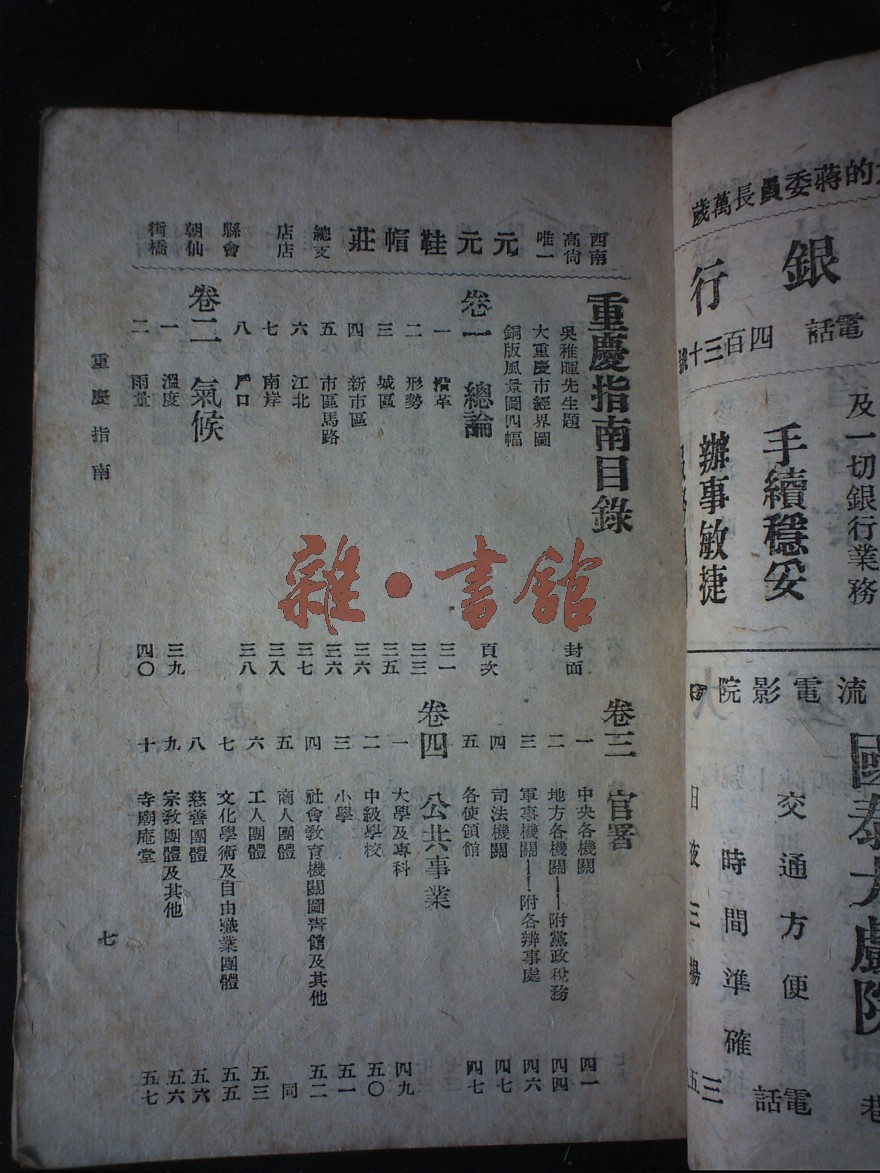 西南
高尚
唯一
元元鞋帽莊
總支
店店
縣會
朝仙
街橋
重慶指南目錄
吳稚暉先生題 封面
大重慶市經界圖
銅版風景圖四幅 頁次
卷一 總論
一 沿革 三一
二 形勢 三三
三 城區 三五
四 新市區 三六
五 市區馬路 三六
六 江北 三七
七 南岸 三八
八 戶口 三八
卷二 氣候
一 溫度 三九
二 雨量 四〇
重慶指南
卷三 官署
一 中央各機關 四一
二 地方各機關——附黨政稅務 四四
三 軍事機關——附各辦事處 四六
四 司法機關 四七
五 各使領館 四七
卷四 公共事業
一 大學及專科 四九
二 中級學校 五〇
三 小學 五一
四 社會教育機關圖書館及其他 五二
五 商人團體 同
六 工人團體 五三
七 文化學術及自由職業團體 五五
八 慈善團體 五六
九 宗教團體及其他 五六
十 寺廟庵堂 五七
七
雜·書館
的蔣委員長萬歲
銀行
電話 四百三十號
及一切銀行業務
手續穩妥
辦事敏捷
流電影院
國泰大戲院
交通方便
時間準確
日夜三場
電話 三五
巷